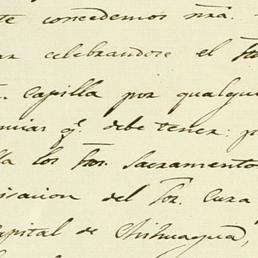 te concedemos nrâ.
ar celebrandose el
Capilla por qualque
encias q.^e debe tener: p
la los Sacramento
isacion del Sor. Cura
apital de Chihuagua,